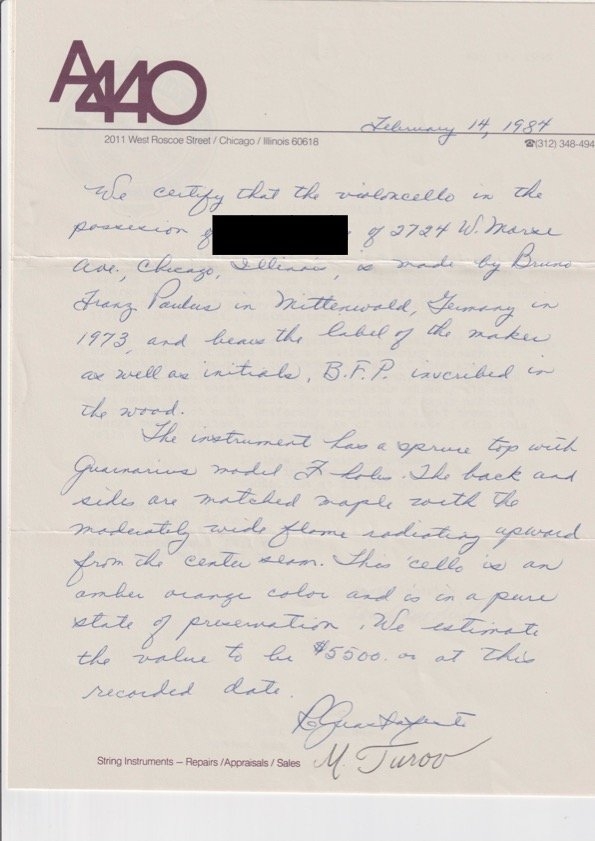 A440
February 14, 1984
2011 West Roscoe Street / Chicago / Illinois 60618
☎(312) 348-494
We certify that the violoncello in the
possesion of of 2724 W. Morse
Ave., Chicago, Illinois, is made by Bruno
Franz Paulus in Mittenwald, Germany in
1973, and bears the label of the maker
as well as initials, B.F.P. inscribed in
the wood.
The instrument has a spruce top with
Guarnarius model F holes. The back and
sides are matched maple with the
moderately wide flame radiating upward
from the center seam. This 'cello is an
amber orange color and is in a pure
state of preservation. We estimate
the value to be $5500. at this
recorded date.
M. Turov
String Instruments – Repairs / Appraisals / Sales